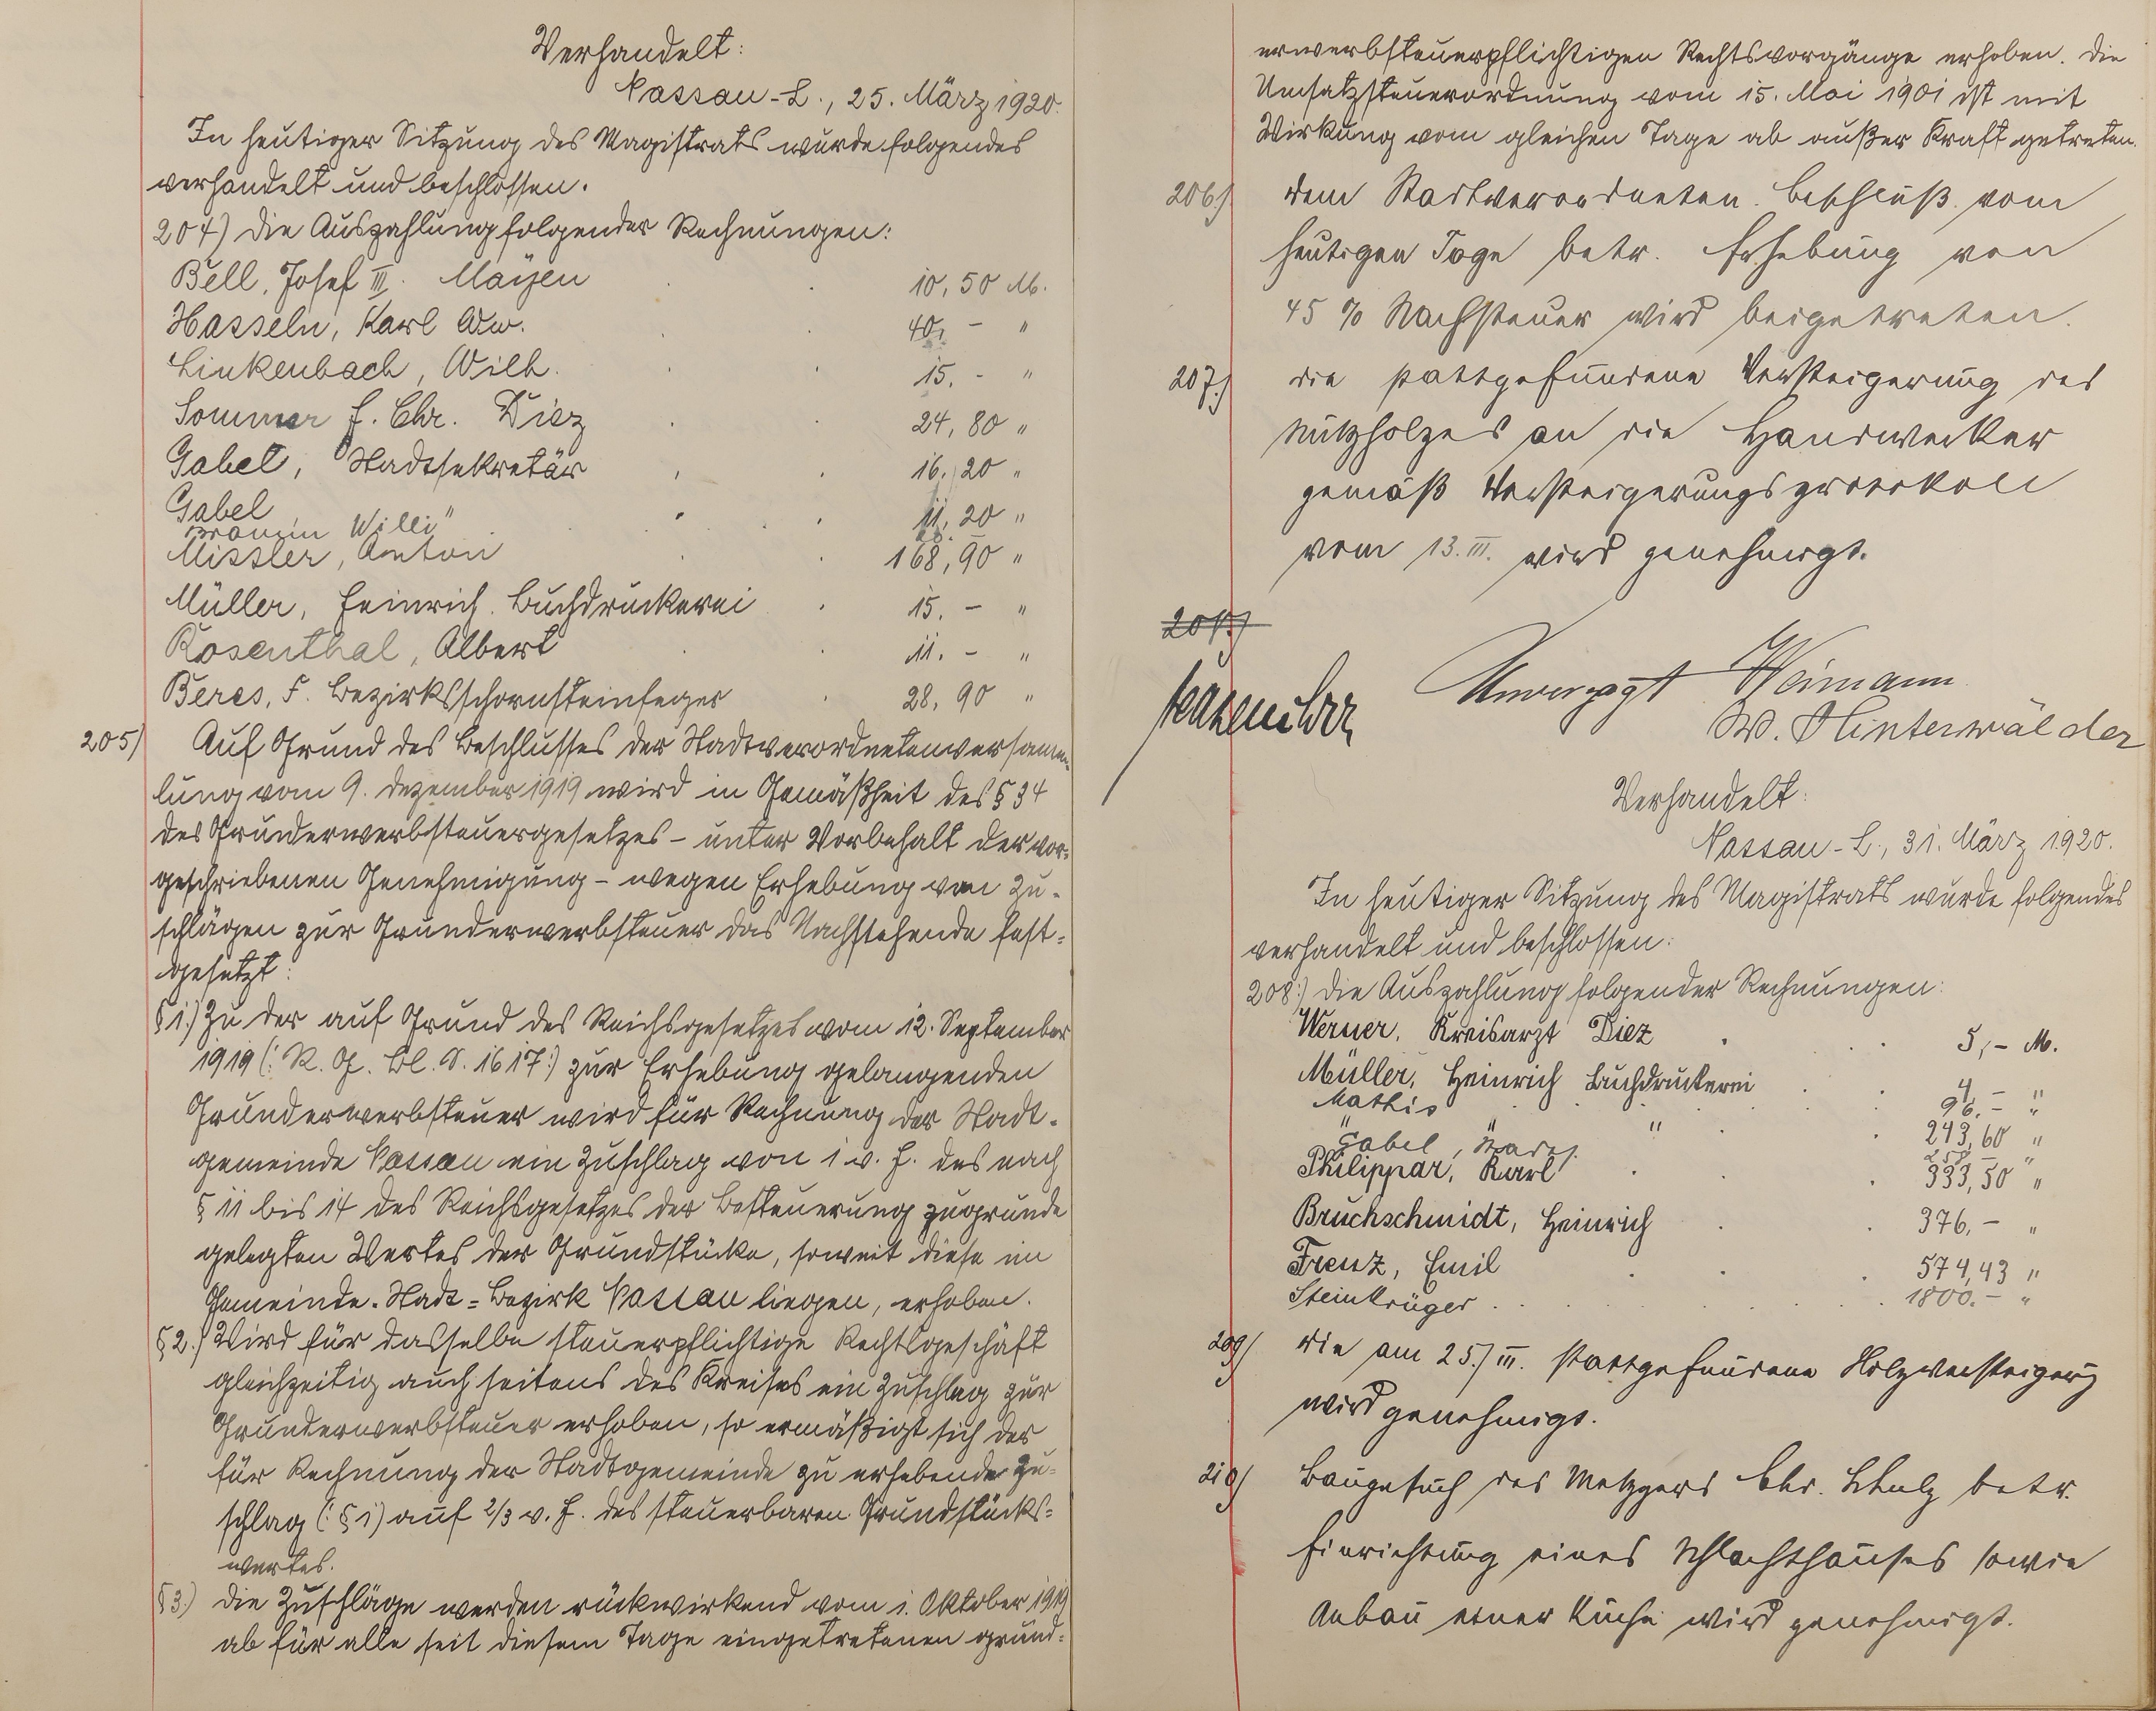 Verhandelt:
Nassau-L., 25. März 1920.
In heutiger Sitzung des Magistrats wurde folgendes
verhandelt und beschlossen.
204) Die Auszahlung folgender Rechnungen:
Bell, Josef III. Mayen 10,50 M.
Hasseln, Karl Ww. 40,- "
Linkenbach, Wilh. 15.- "
Sommer f. Chr. Diez 24,80 "
Gabel, Stadtsekretär 16.20 "
Gabel 11,20 "
Willi
Missler, Anton 168,90 "
Müller, Heinrich. Buchdruckerei 15.- "
Rosenthal, Albert 11.- "
Beres, F. Bezirksschornsteinfeger 28,90 "
205) Auf Grund des Beschlusses der Stadtverordnetenversamm-
lung vom 9. Dezember 1919 wird in Gemäßheit des § 34
des Grunderwerbsteuergesetzes - unter Vorbehalt der vor-
geschriebenen Genehmigung - wegen Erhebung von Zu-
schlägen zur Grunderwerbsteuer das Nachstehende fest-
gesetzt:
§ 1.) Zu der auf Grund des Reichsgesetzes vom 12. September
1919 (: R. G. Bl. S. 1617:) zur Erhebung gelangenden
Grunderwerbsteuer wird für Rechnung der Stadt-
gemeinde Nassau ein Zuschlag von 1 v. H. des nach
§ 11 bis 14 des Reichsgesetzes der Besteuerung zugrunde
gelegten Wertes der Grundstücke, soweit diese im
Gemeinde-Stadt=Bezirk Nassau liegen, erhoben.
§ 2.) Wird für dasselbe steuerpflichtige Rechtsgeschäft
gleichzeitig auch seitens des Kreises ein Zuschlag zur
Grunderwerbsteuer erhoben, so ermäßigt sich der
für Rechnung der Stadtgemeinde zu erhebende Zu-
schlag (: § 1) auf 2/3 v. H. des steuerbaren Grundstücks=
wertes.
§ 3.) Die Zuschläge werden rückwirkend vom 1. Oktober 1919
ab für alle seit diesem Tage eingetretenen grund=
erwerbsteuerpflichtigen Rechtsvorgänge erhoben. Die
Umsatzsteuerordnung vom 15. Mai 1901 ist mit
Wirkung vom gleichen Tage ab außer Kraft getreten.
206.) Dem Stadtverordneten. Beschluß vom
heutigen Tage betr. Erhebung von
45 % Nachsteuer wird beigetreten.
207.) Die stattgefundene Versteigerung des
Nutzholzes an die Handwerker
gemäß Versteigerungsprotokoll
vom 13. III. wird genehmigt.
Unverzagt Weimann
W. Hinterwälder
Verhandelt:
Nassau-L., 31. März 1920.
In heutiger Sitzung des Magistrats wurde folgendes
verhandelt und beschlossen:
208.) Die Auszahlung folgender Rechnungen:
Werner, Kreisarzt Diez 5,- M.
Müller, Heinrich Buchdruckerei 4,- "
Mathis 96.- "
" " " 243,60 "
Gabel,
Philippar, Karl 333,50 "
Bruchschmidt, Heinrich 376,- "
Frenz, Emil 574,43 "
Steinkrüger 1800.- "
209) Die am 25./III. stattgefundene Holzversteigerung
wird genehmigt.
210) Baugesuch des Metzgers Chr. Schulz betr.
Einrichtung eines Schlachthauses sowie
Anbau einer Küche wird genehmigt.